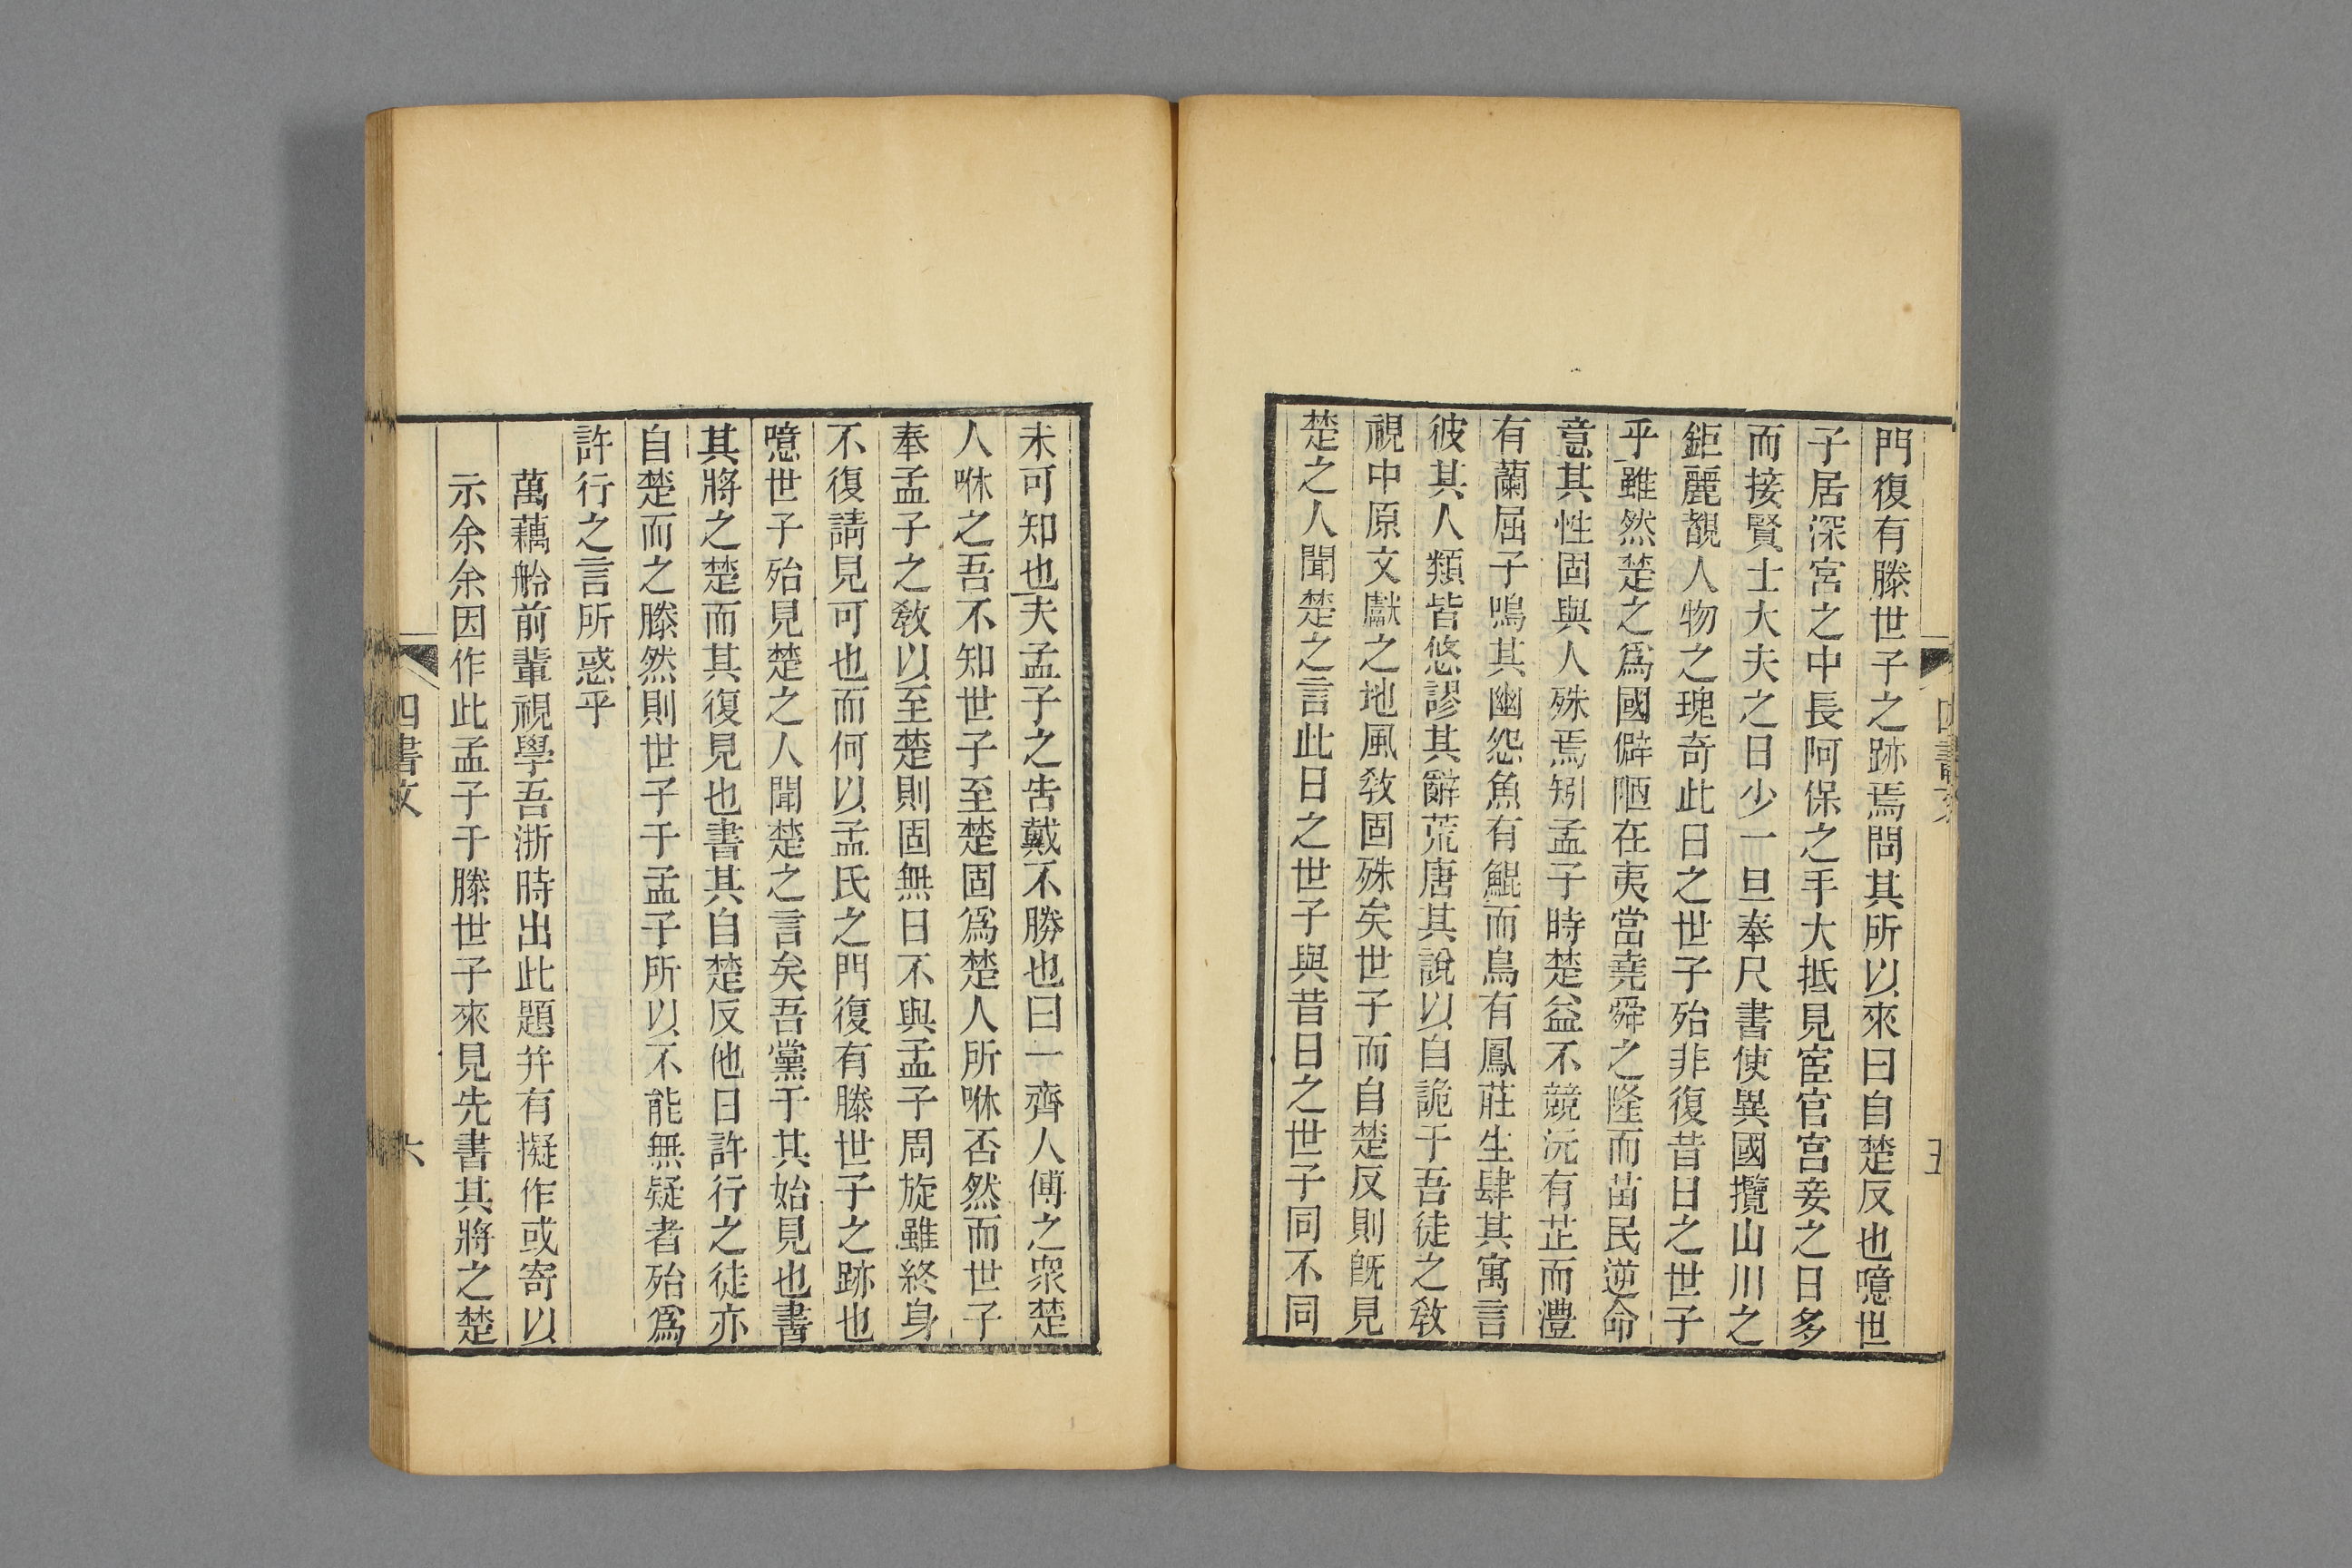 門復有滕世子之跡焉問其所以來曰自楚反也噫世
子居深宮之中長阿保之手大抵見宦官宮妾之日多
而接賢士大夫之日少一旦奉尺書使異國攬山川之
鉅麗覩人物之瑰奇此日之世子殆非復昔日之世子
乎雖然楚之爲國僻陋在夷當堯舜之隆而苗民逆命
意其性固與人殊焉矧孟子時楚益不競沅有芷而澧
有蘭屈子鳴其幽怨魚有鯤而鳥有鳳莊生肆其寓言
彼其人類皆悠謬其辭荒唐其說以自詭于吾徒之敎
視中原文獻之地風敎固殊矣世子而自楚反則旣見
楚之人聞楚之言此日之世子與昔日之世子同不同
四書文
五
未可知也夫孟子之告戴不勝也曰一齊人傅之眾楚
人咻之吾不知世子至楚固爲楚人所咻否然而世子
奉孟子之敎以至楚則固無日不與孟子周旋雖終身
不復請見可也而何以孟氏之門復有滕世子之跡也
噫世子殆見楚之人聞楚之言矣吾黨于其始見也書
其將之楚而其復見也書其自楚反他日許行之徒亦
自楚而之滕然則世子于孟子所以不能無疑者殆爲
許行之言所惑乎
萬藕舲前輩視學吾浙時出此題并有擬作或寄以
示余余因作此孟子于滕世子來見先書其將之楚
四書文
六